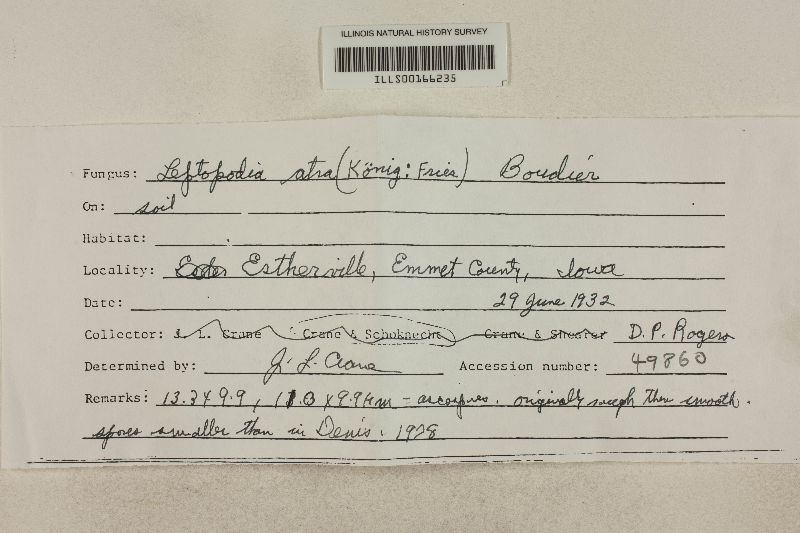 ILLINOIS NATURAL HISTORY SURVEY
ILLS00166235
Fungus: Leptopodia atra (König: Fries) Boudier
On: soil
Habitat:
Locality: Estherville, Emmet County, Iowa
Date: 29 June 1932
Collector: J. L. Crane Crane & Schoknecht Crane & Shearer D. P. Rogers
Determined by: J. L. Crane Accession number: 49860
Remarks: 13.3 x 9.9, 11.0 x 9.9 µm - ascospores. originally rough then smooth.
spores smaller than in Denis. 1978